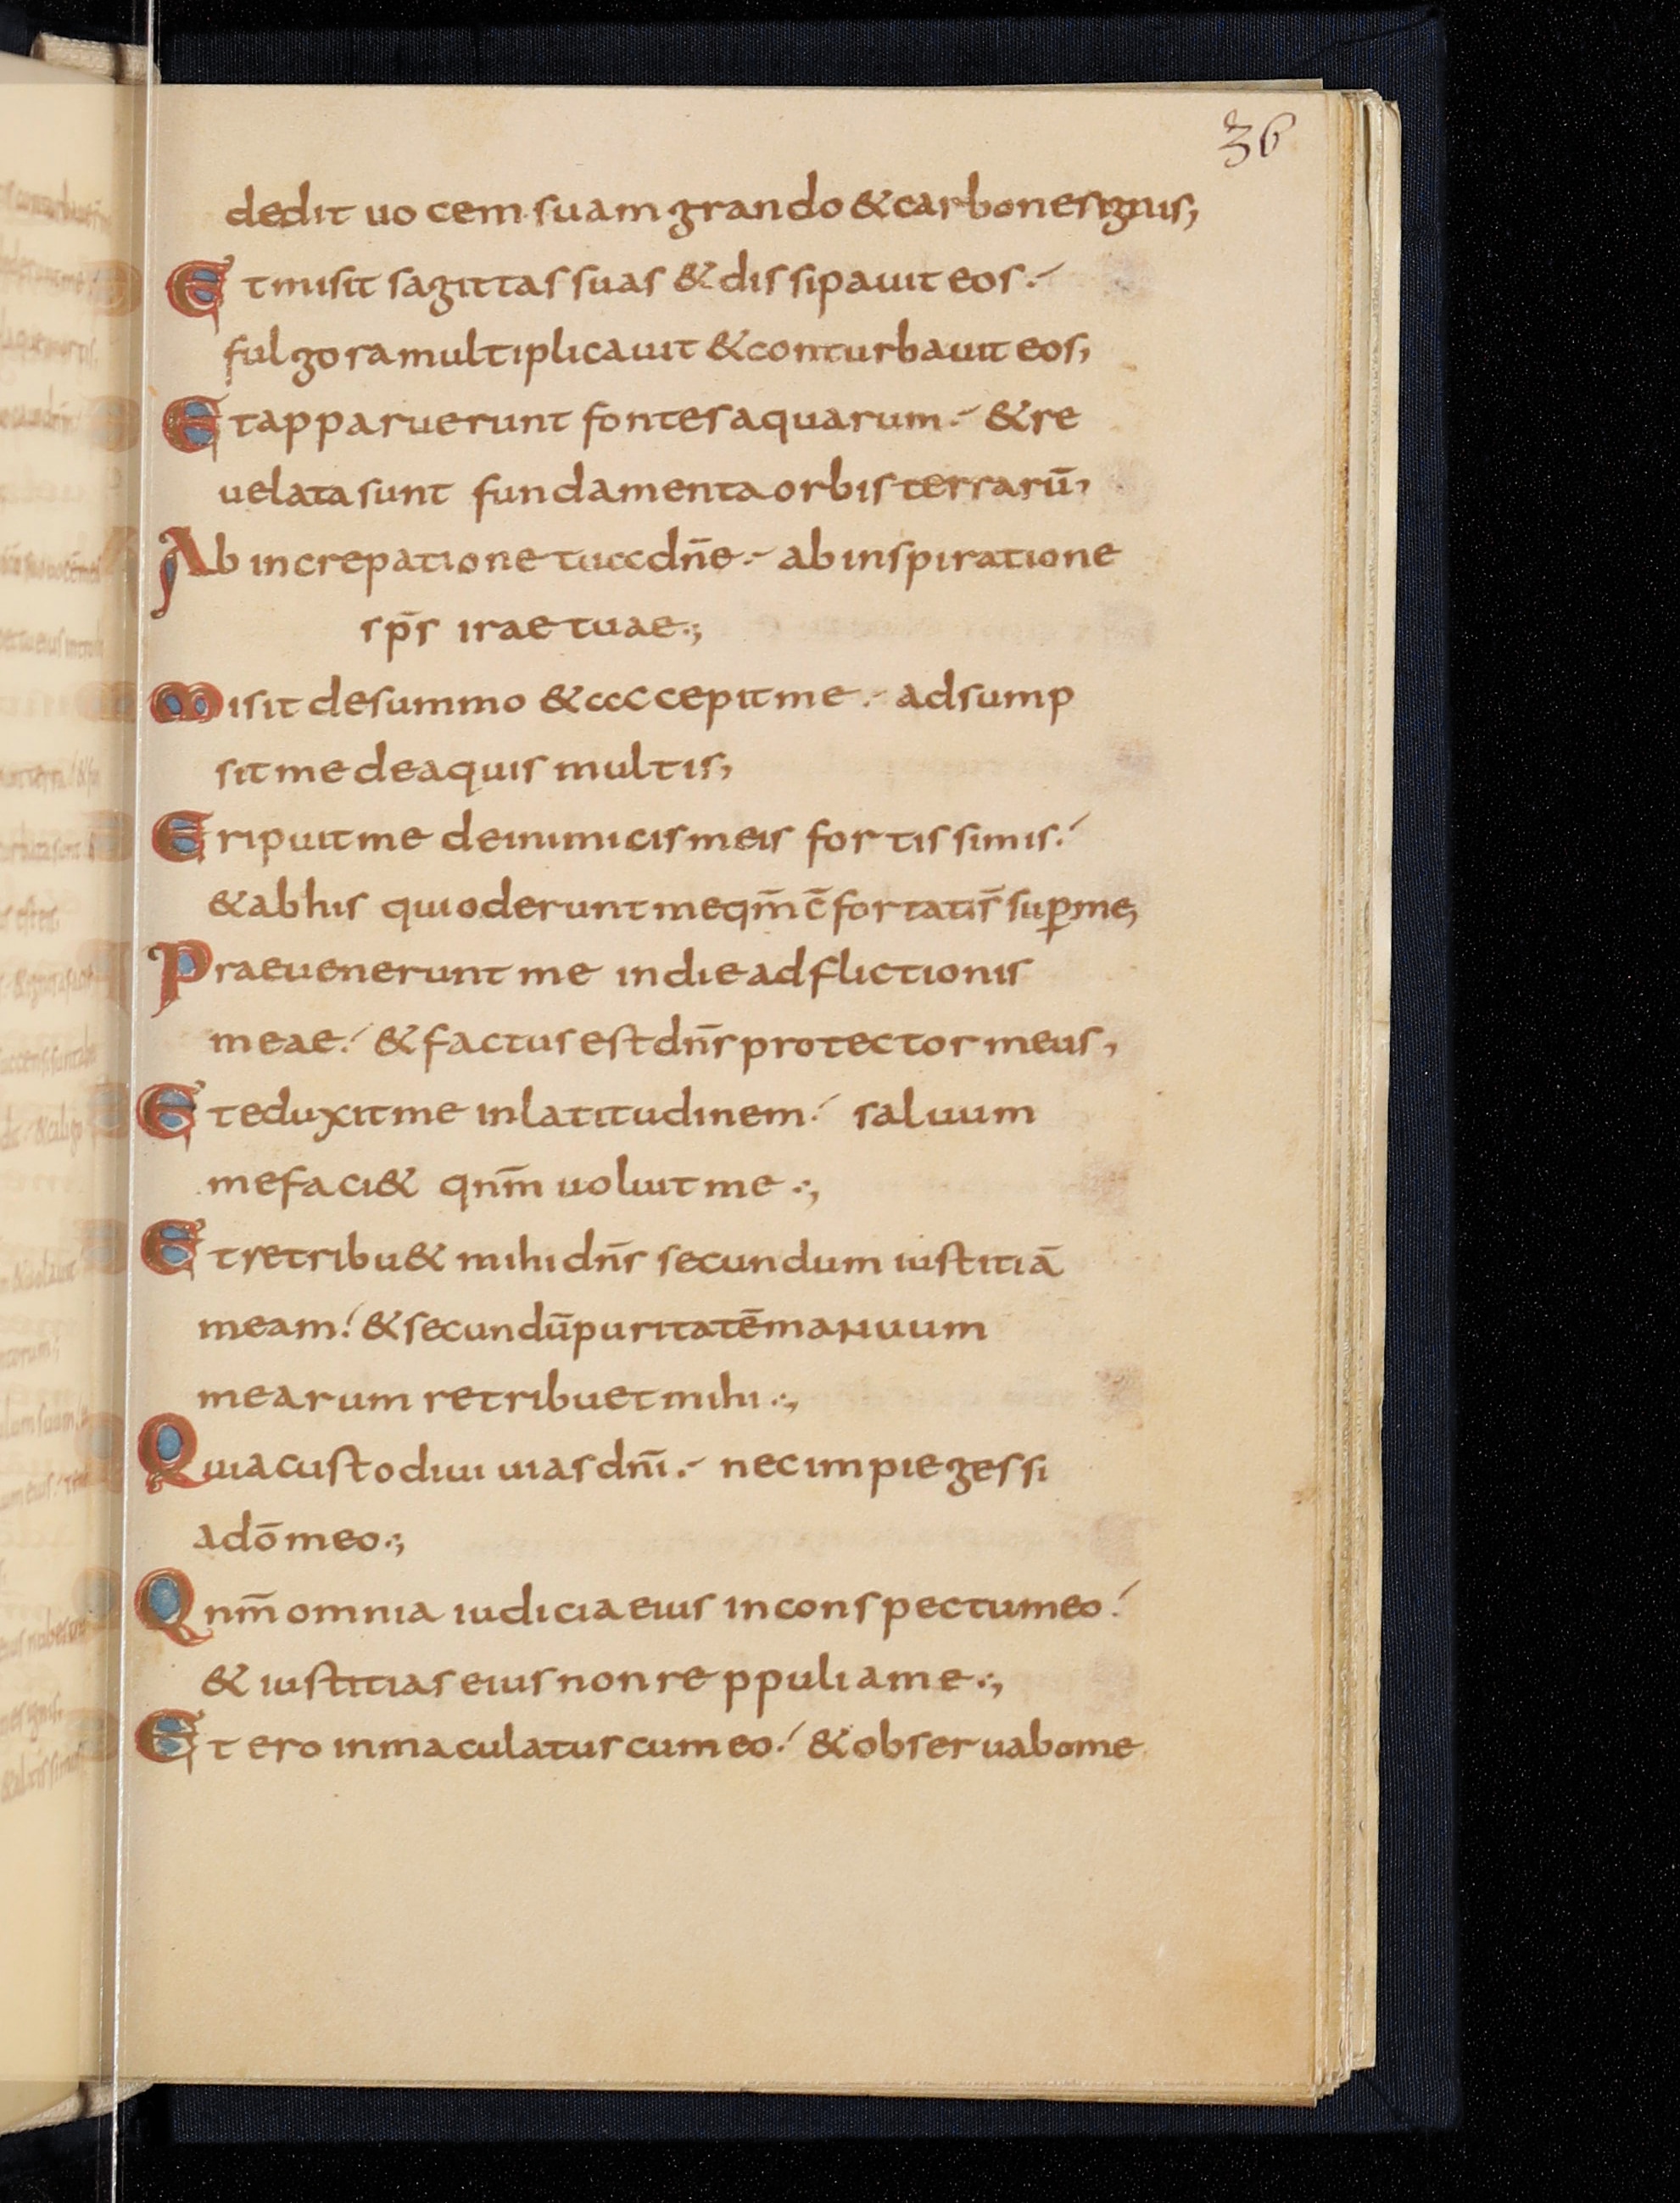 36
dedit uocem suam grando & carbones ignis;
Et misit sagittas suas & dissipauit eos.
fulgora multiplicauit & conturbauit eos;
Et apparuerunt fontes aquarum. & re
uelata sunt fundamenta orbis terrarū;
Ab increpatione tua dn̄e. ab inspiratione
sp̄s irae tuae.,
Misit de summo & accepit me. adsump
sit me de aquis multis;
Eripuit me de inimicis meis fortissimis.
& ab his qui oderunt me qm̄ c̄fortatis̄ sup̱ me;
Praeuenerunt me in die adflictionis
meae. & factus est dn̄s protector meus,
Et eduxit me in latitudinem. saluum
me faci& qnm̄ uoluit me.,
Et retribu& mihi dn̄s secundum iustitiā
meam. & secundū puritatē manuum
mearum retribuet mihi.,
Quia custodiui uias dn̄i. nec impie gessi
a dō meo.,
Qnm̄ omnia iudicia eius in conspectu meo.
& iustitias eius non reppuli a me.,
Et ero inmaculatus cum eo. & obseruabo me